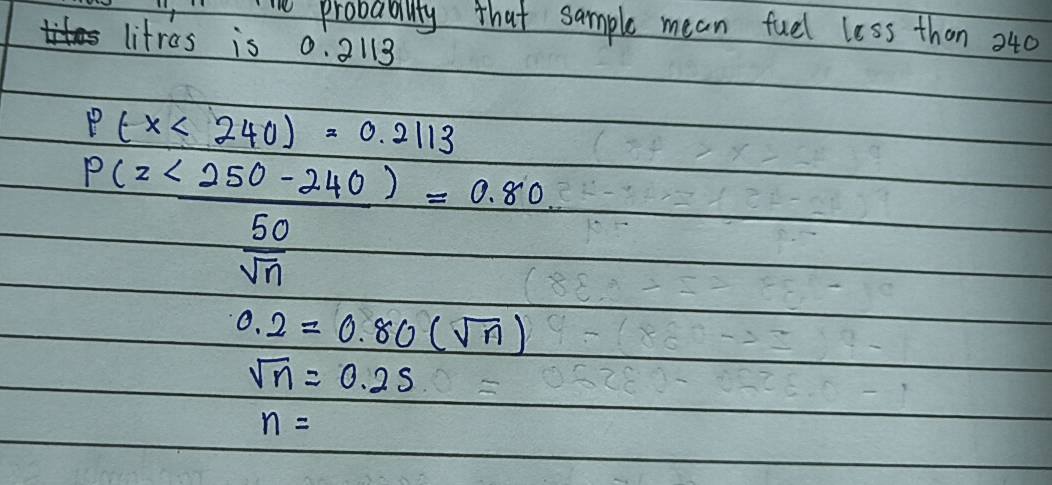 the probability that sample mean fuel less than 240
litres is 0.2113
P(x < 240) = 0.2113
P(z < 250 - 240) = 0.80
50
√n
0.2 = 0.80 (√n)
√n = 0.25
n =